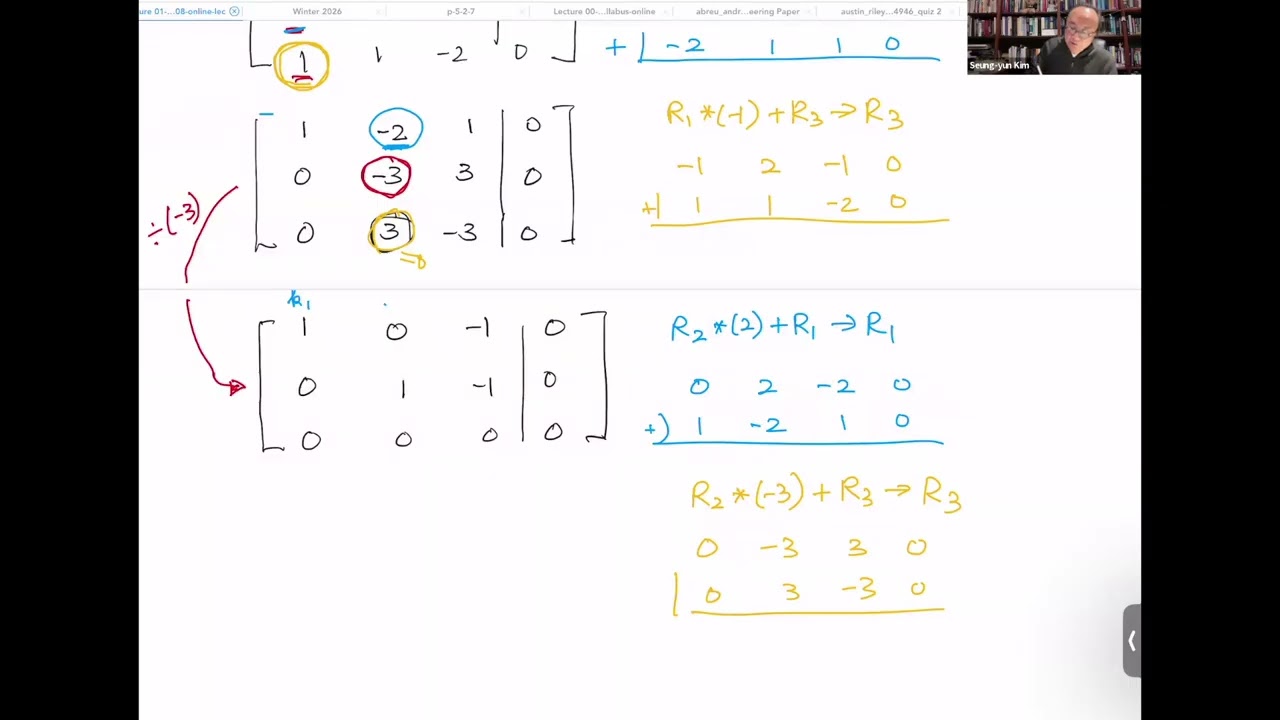 ure 01-...08-online-lec Winter 2026 p-5-2-7 Lecture 00-...llabus-online abreu_andr...eering Paper austin_riley...4946_quiz 2
1 1 -2 0
+ -2 1 1 0
Seung-yun Kim
1 -2 1 0
0 -3 3 0
0 3 -3 0
÷(-3)
=0
R₁*(-1)+R₃→R₃
-1 2 -1 0
+ 1 1 -2 0
k₁
1 0 -1 0
0 1 -1 0
0 0 0 0
R₂*(2)+R₁→R₁
0 2 -2 0
+) 1 -2 1 0
R₂*(-3)+R₃→R₃
0 -3 3 0
0 3 -3 0